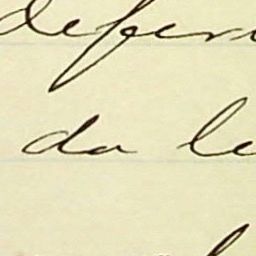 defen
da le